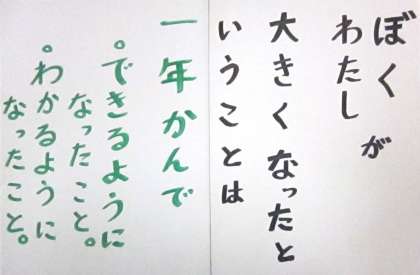 ぼくが
わたし
大きくなったと
いうことは
一年かんで
。できるように
なったこと。
。わかるように
なったこと。